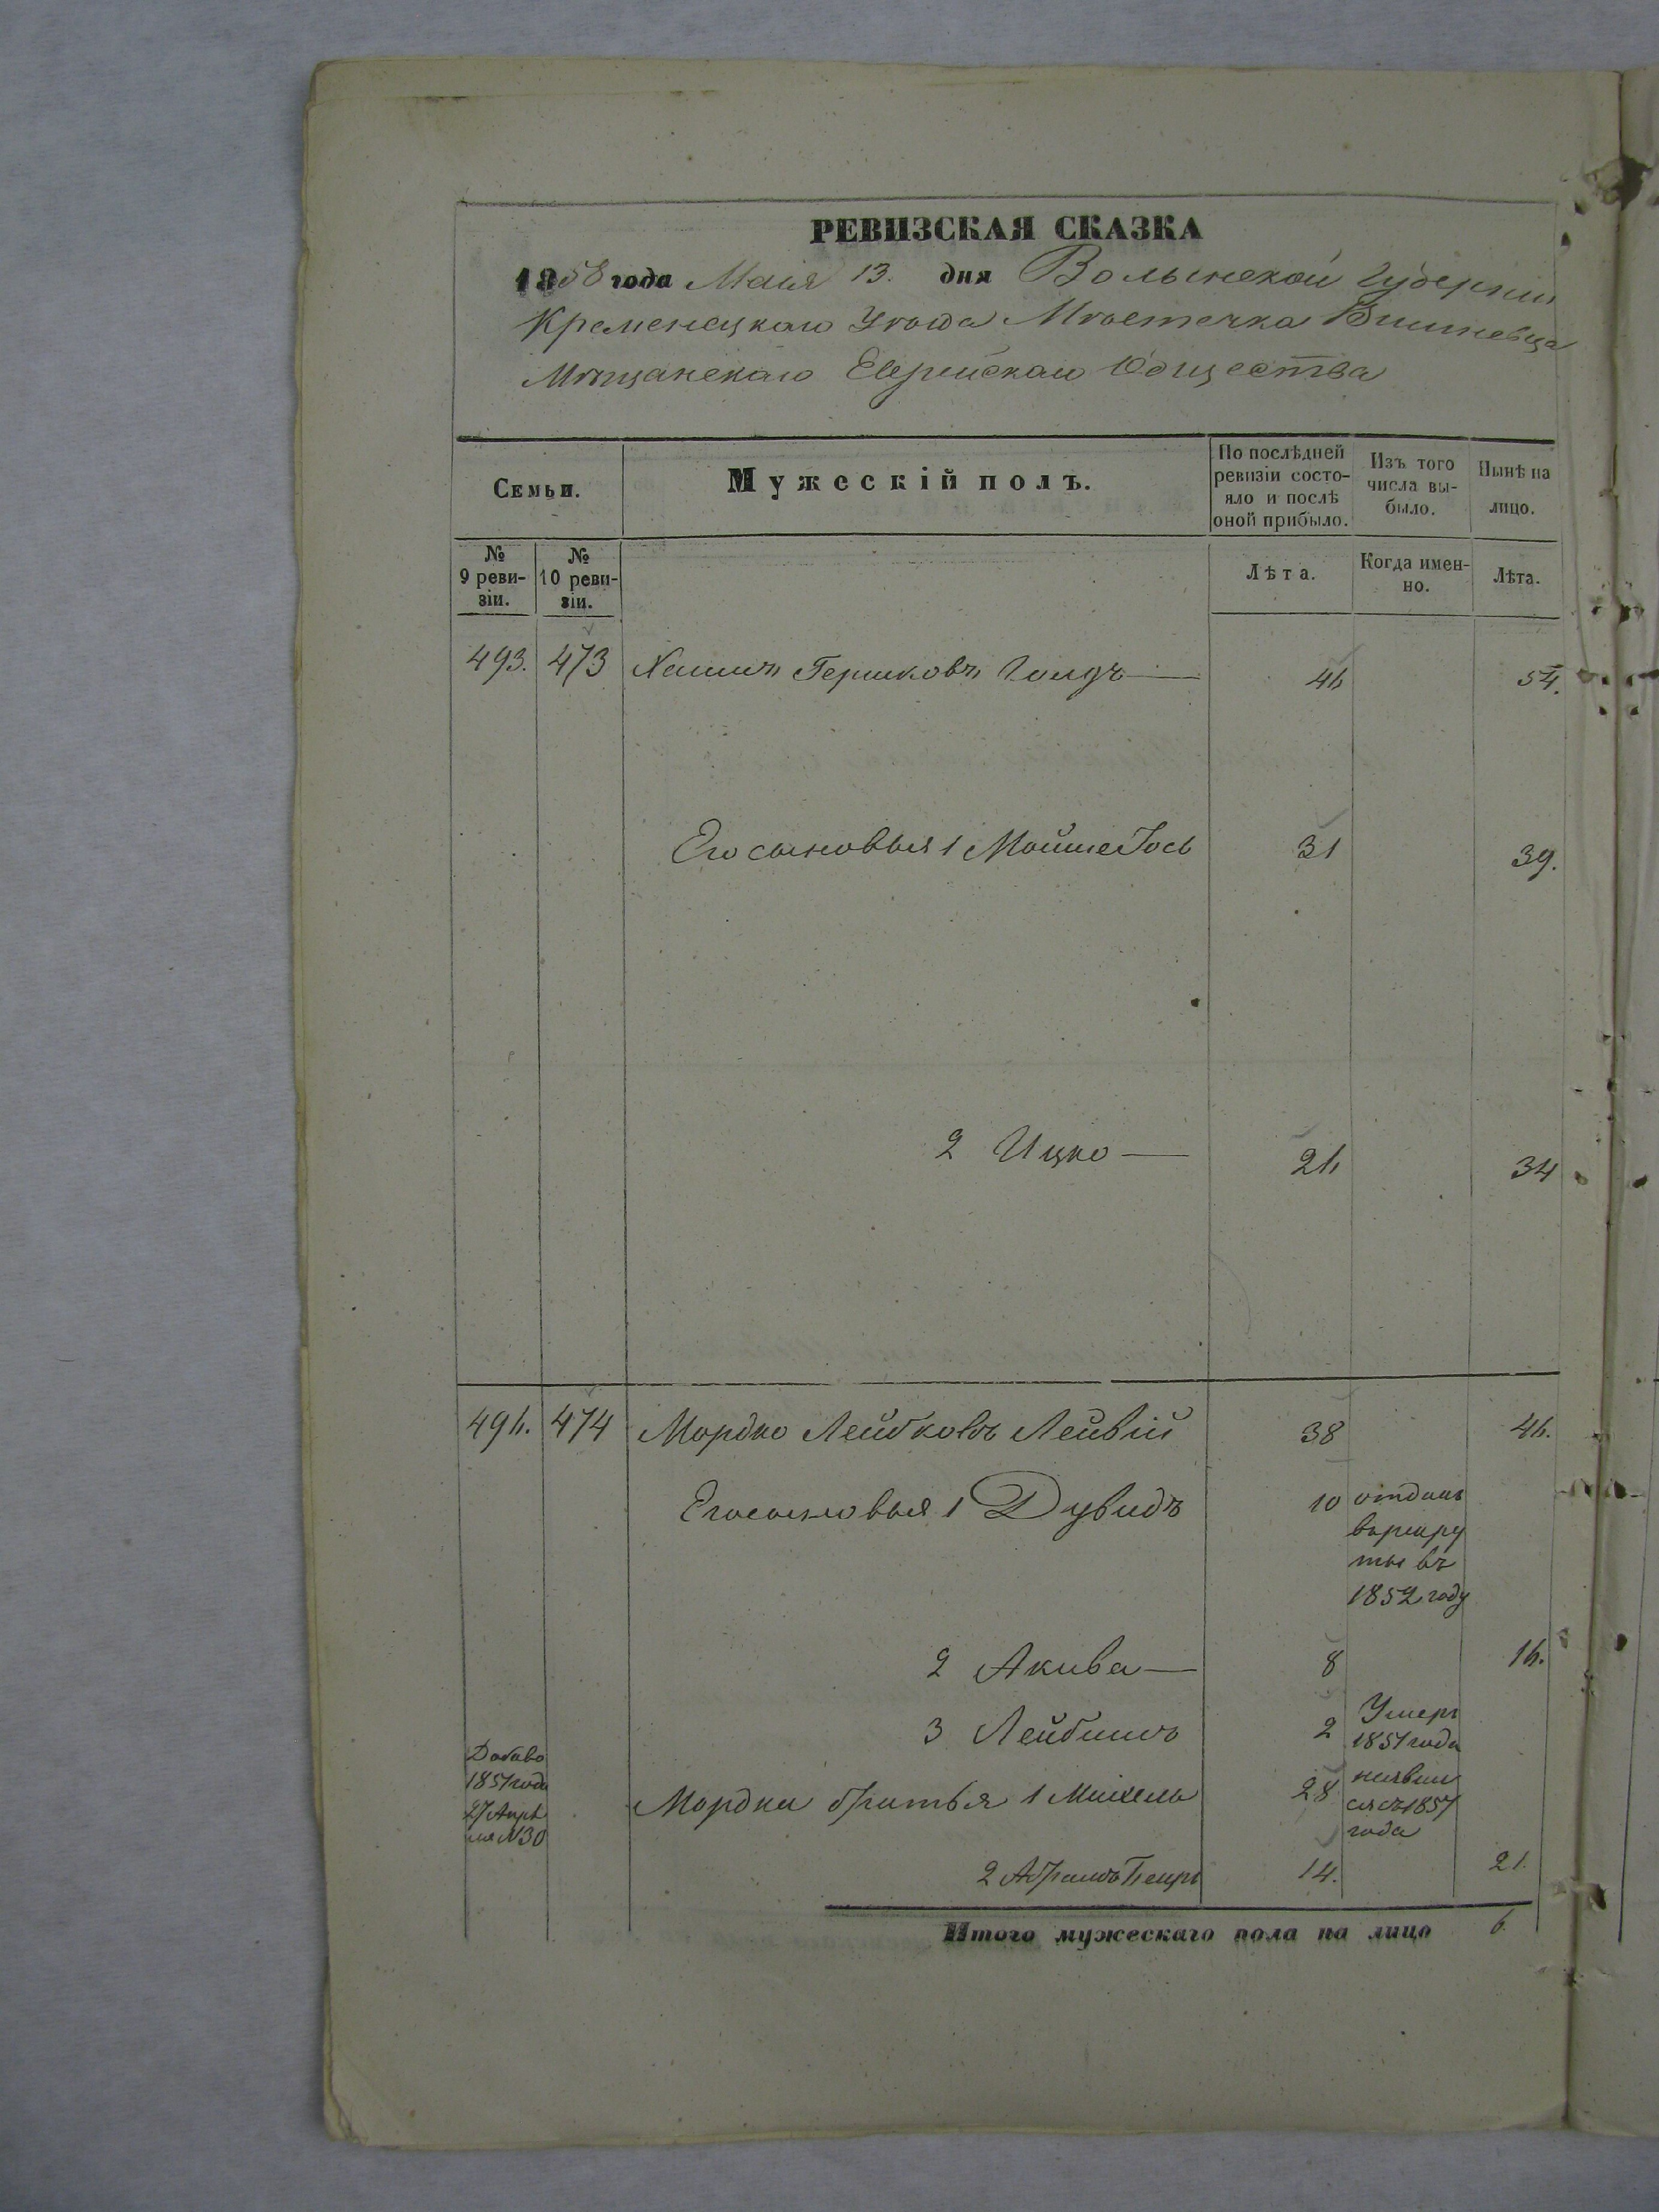 РЕВИЗСКАЯ СКАЗКА
1858 года Маія 13. дня Волынской Губерніи
Кременецкаго Уѣзда Мѣстечка Вишневца
Мѣщанскаго Еврейскаго Общества
Семьи.
Мужескій полъ.
По послѣдней ревизіи состо-
яло и послѣ оной прибыло.
Изъ того числа вы-
было.
Нынѣ на лицо.
№ 9 реви-
зіи.
№ 10 реви-
зіи.
Лѣта.
Когда имен-
но.
Лѣта.
493. 473 Хаимъ Гершковъ 46 54.
Его сыновья 1 МойшеІось 31 39.
2 Ицко 26 34
496. 474 Мордко Лейбковъ Лейвій 38 46.
Его сыновья 1 Дувидъ 10 отданъ
въ рекру
ты въ
1852 году
2 Акива 8 16.
3 Лейбишъ 2 Умеръ
1851 года
Добаво
1851 года
27 Апрѣ
ля N30
Мордки братья 1 Михель 28
года
2 Абрамъ Бееръ 14. 21.
Итого мужескаго пола на лицо 6.